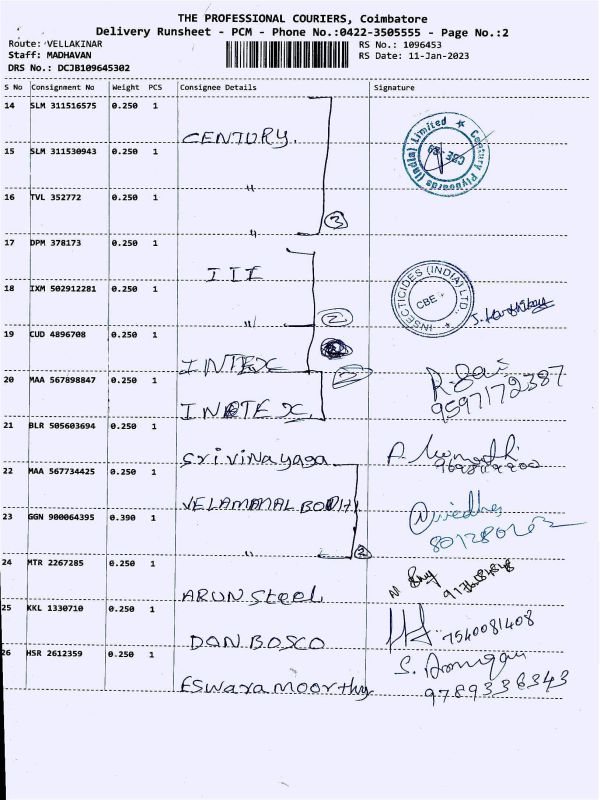 THE PROFESSIONAL COURIERS, Coimbatore
Delivery Runsheet - PCM - Phone No.:0422-3505555 - Page No.:2
Route: VELLAKINAR RS No.: 1096453
Staff: MADHAVAN RS Date: 11-Jan-2023
DRS No.: DCJB109645302
S No Consignment No Weight PCS Consignee Details Signature
14 SLM 311516575 0.250 1
CENTURY.
Century Plyboards (India) Limited ★ CBE
15 SLM 311530943 0.250 1
"
16 TVL 352772 0.250 1
" 3
17 DPM 378173 0.250 1
III
INSECTICIDES (INDIA) LTD. CBE
18 IXM 502912281 0.250 1
" 2
19 CUD 4896708 0.250 1
INTEX
20 MAA 567898847 0.250 1
INTEX 9597172387
21 BLR 505603694 0.250 1
Srivinayaga
22 MAA 567734425 0.250 1
VELAMMAL BODHI
23 GGN 900064395 0.390 1
" 2
24 MTR 2267285 0.250 1
ARUN Steel
25 KKL 1330710 0.250 1
DON BOSCO 7540081408
26 HSR 2612359 0.250 1
Eswaramoorthy 9789336343